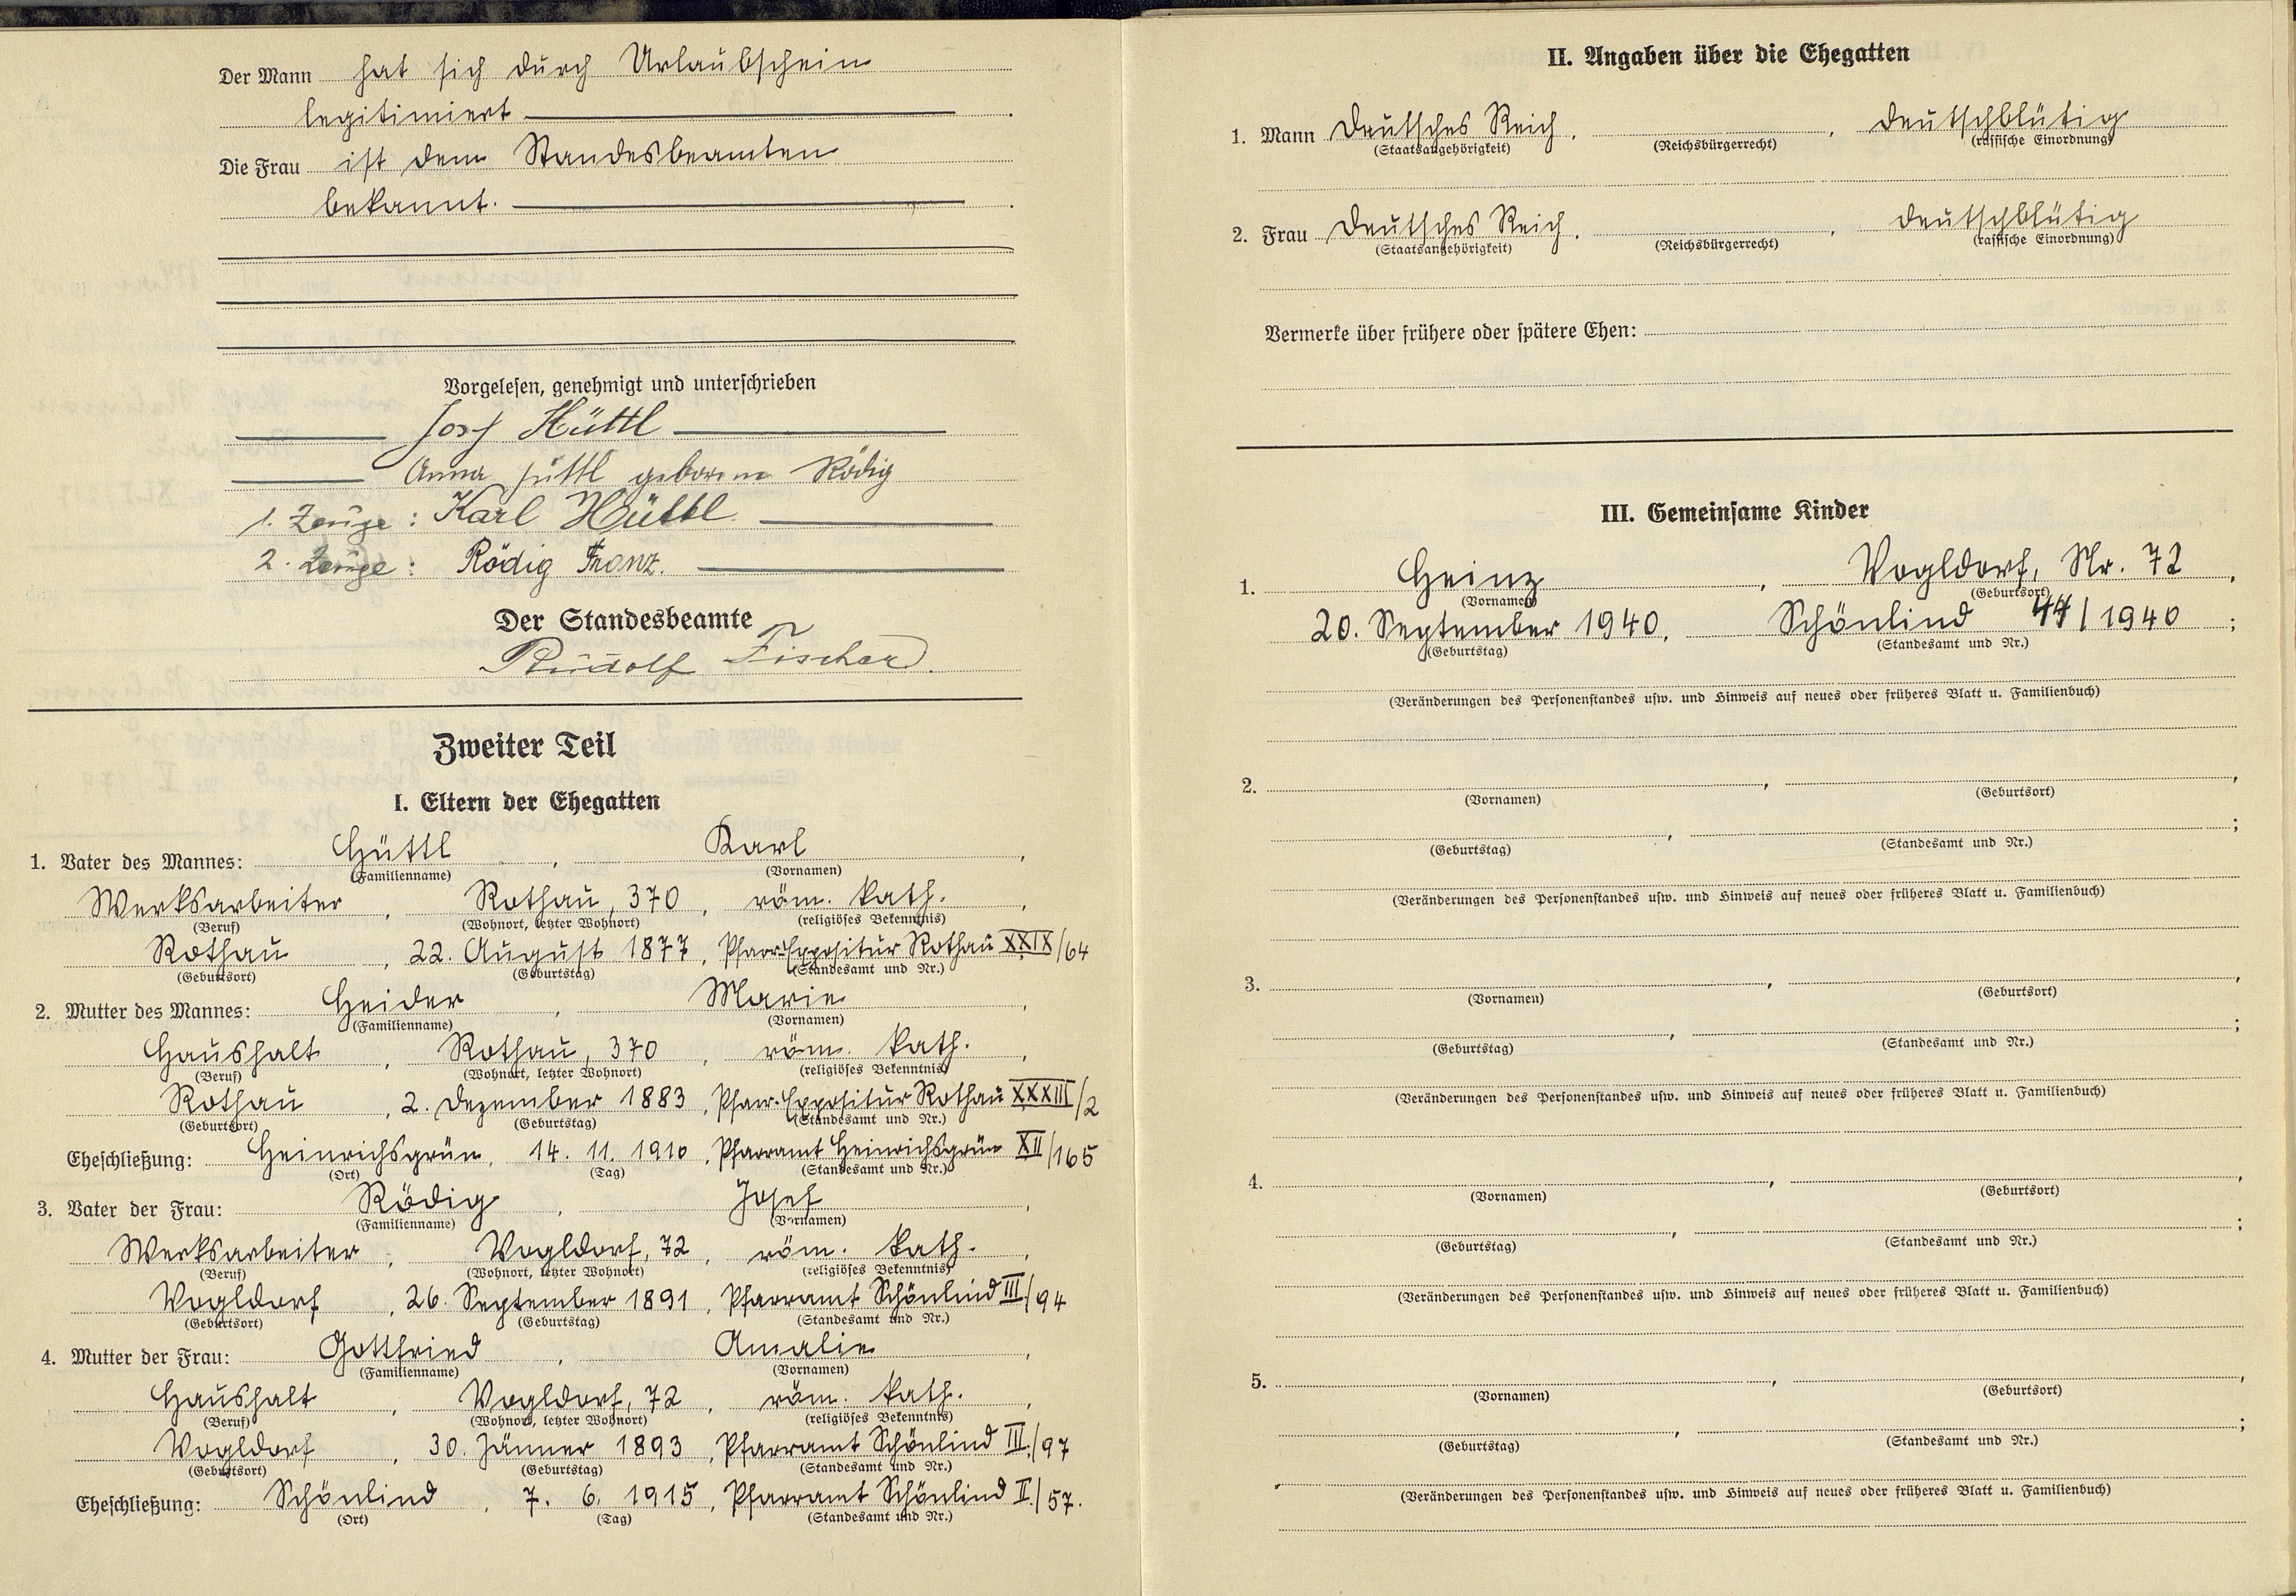 Der Mann hat sich durch Urlaubschein
legitimiert.
Die Frau ist dem Standesbeamten
bekannt.
Vorgelesen, genehmigt und unterschrieben
Josef Hüttl
Anna Hüttl geborene Rödig
1. Zeuge: Karl Hüttl.
2. Zeuge: Rödig Franz.
Der Standesbeamte
Rudolf Fischer.
Zweiter Teil
I. Eltern der Ehegatten
1. Vater des Mannes: Hüttl, Karl,
(Familienname) (Vornamen)
Werksarbeiter, Rothau, 370, röm. kath.,
(Beruf) (Wohnort, letzter Wohnort) (religiöses Bekenntnis)
Rothau, 22. August 1877, Pfarr-Expositur Rothau XXIX/64
(Geburtsort) (Geburtstag) (Standesamt und Nr.)
2. Mutter des Mannes: Heider, Marie,
(Familienname) (Vornamen)
Haushalt, Rothau, 370, röm. kath.,
(Beruf) (Wohnort, letzter Wohnort) (religiöses Bekenntnis)
Rothau, 2. Dezember 1883, Pfarr-Expositur Rothau XXXIII/2
(Geburtsort) (Geburtstag) (Standesamt und Nr.)
Eheschließung: Heinrichsgrün, 14. 11. 1910, Pfarramt Heinrichsgrün XII/165
(Ort) (Tag) (Standesamt und Nr.)
3. Vater der Frau: Rödig, Josef,
(Familienname) (Vornamen)
Werksarbeiter, Vogldorf, 72, röm. kath.,
(Beruf) (Wohnort, letzter Wohnort) (religiöses Bekenntnis)
Vogldorf, 26. September 1891, Pfarramt Schönlind III/94
(Geburtsort) (Geburtstag) (Standesamt und Nr.)
4. Mutter der Frau: Gottfried, Amalie,
(Familienname) (Vornamen)
Haushalt, Vogldorf, 72, röm. kath.,
(Beruf) (Wohnort, letzter Wohnort) (religiöses Bekenntnis)
Vogldorf, 30. Jänner 1893, Pfarramt Schönlind III./97
(Geburtsort) (Geburtstag) (Standesamt und Nr.)
Eheschließung: Schönlind, 7. 6. 1915, Pfarramt Schönlind II./57.
(Ort) (Tag) (Standesamt und Nr.)
II. Angaben über die Ehegatten
1. Mann Deutsches Reich, , deutschblütig
(Staatsangehörigkeit) (Reichsbürgerrecht) (rassische Einordnung)
2. Frau Deutsches Reich, , deutschblütig
(Staatsangehörigkeit) (Reichsbürgerrecht) (rassische Einordnung)
Vermerke über frühere oder spätere Ehen:
III. Gemeinsame Kinder
1. Heinz, Vogldorf, Nr. 72,
(Vornamen) (Geburtsort)
20. September 1940, Schönlind 44/1940;
(Geburtstag) (Standesamt und Nr.)
(Veränderungen des Personenstandes usw. und Hinweis auf neues oder früheres Blatt u. Familienbuch)
2. , ,
(Vornamen) (Geburtsort)
, ;
(Geburtstag) (Standesamt und Nr.)
(Veränderungen des Personenstandes usw. und Hinweis auf neues oder früheres Blatt u. Familienbuch)
3. , ,
(Vornamen) (Geburtsort)
, ;
(Geburtstag) (Standesamt und Nr.)
(Veränderungen des Personenstandes usw. und Hinweis auf neues oder früheres Blatt u. Familienbuch)
4. , ,
(Vornamen) (Geburtsort)
, ;
(Geburtstag) (Standesamt und Nr.)
(Veränderungen des Personenstandes usw. und Hinweis auf neues oder früheres Blatt u. Familienbuch)
5. , ,
(Vornamen) (Geburtsort)
, ;
(Geburtstag) (Standesamt und Nr.)
(Veränderungen des Personenstandes usw. und Hinweis auf neues oder früheres Blatt u. Familienbuch)